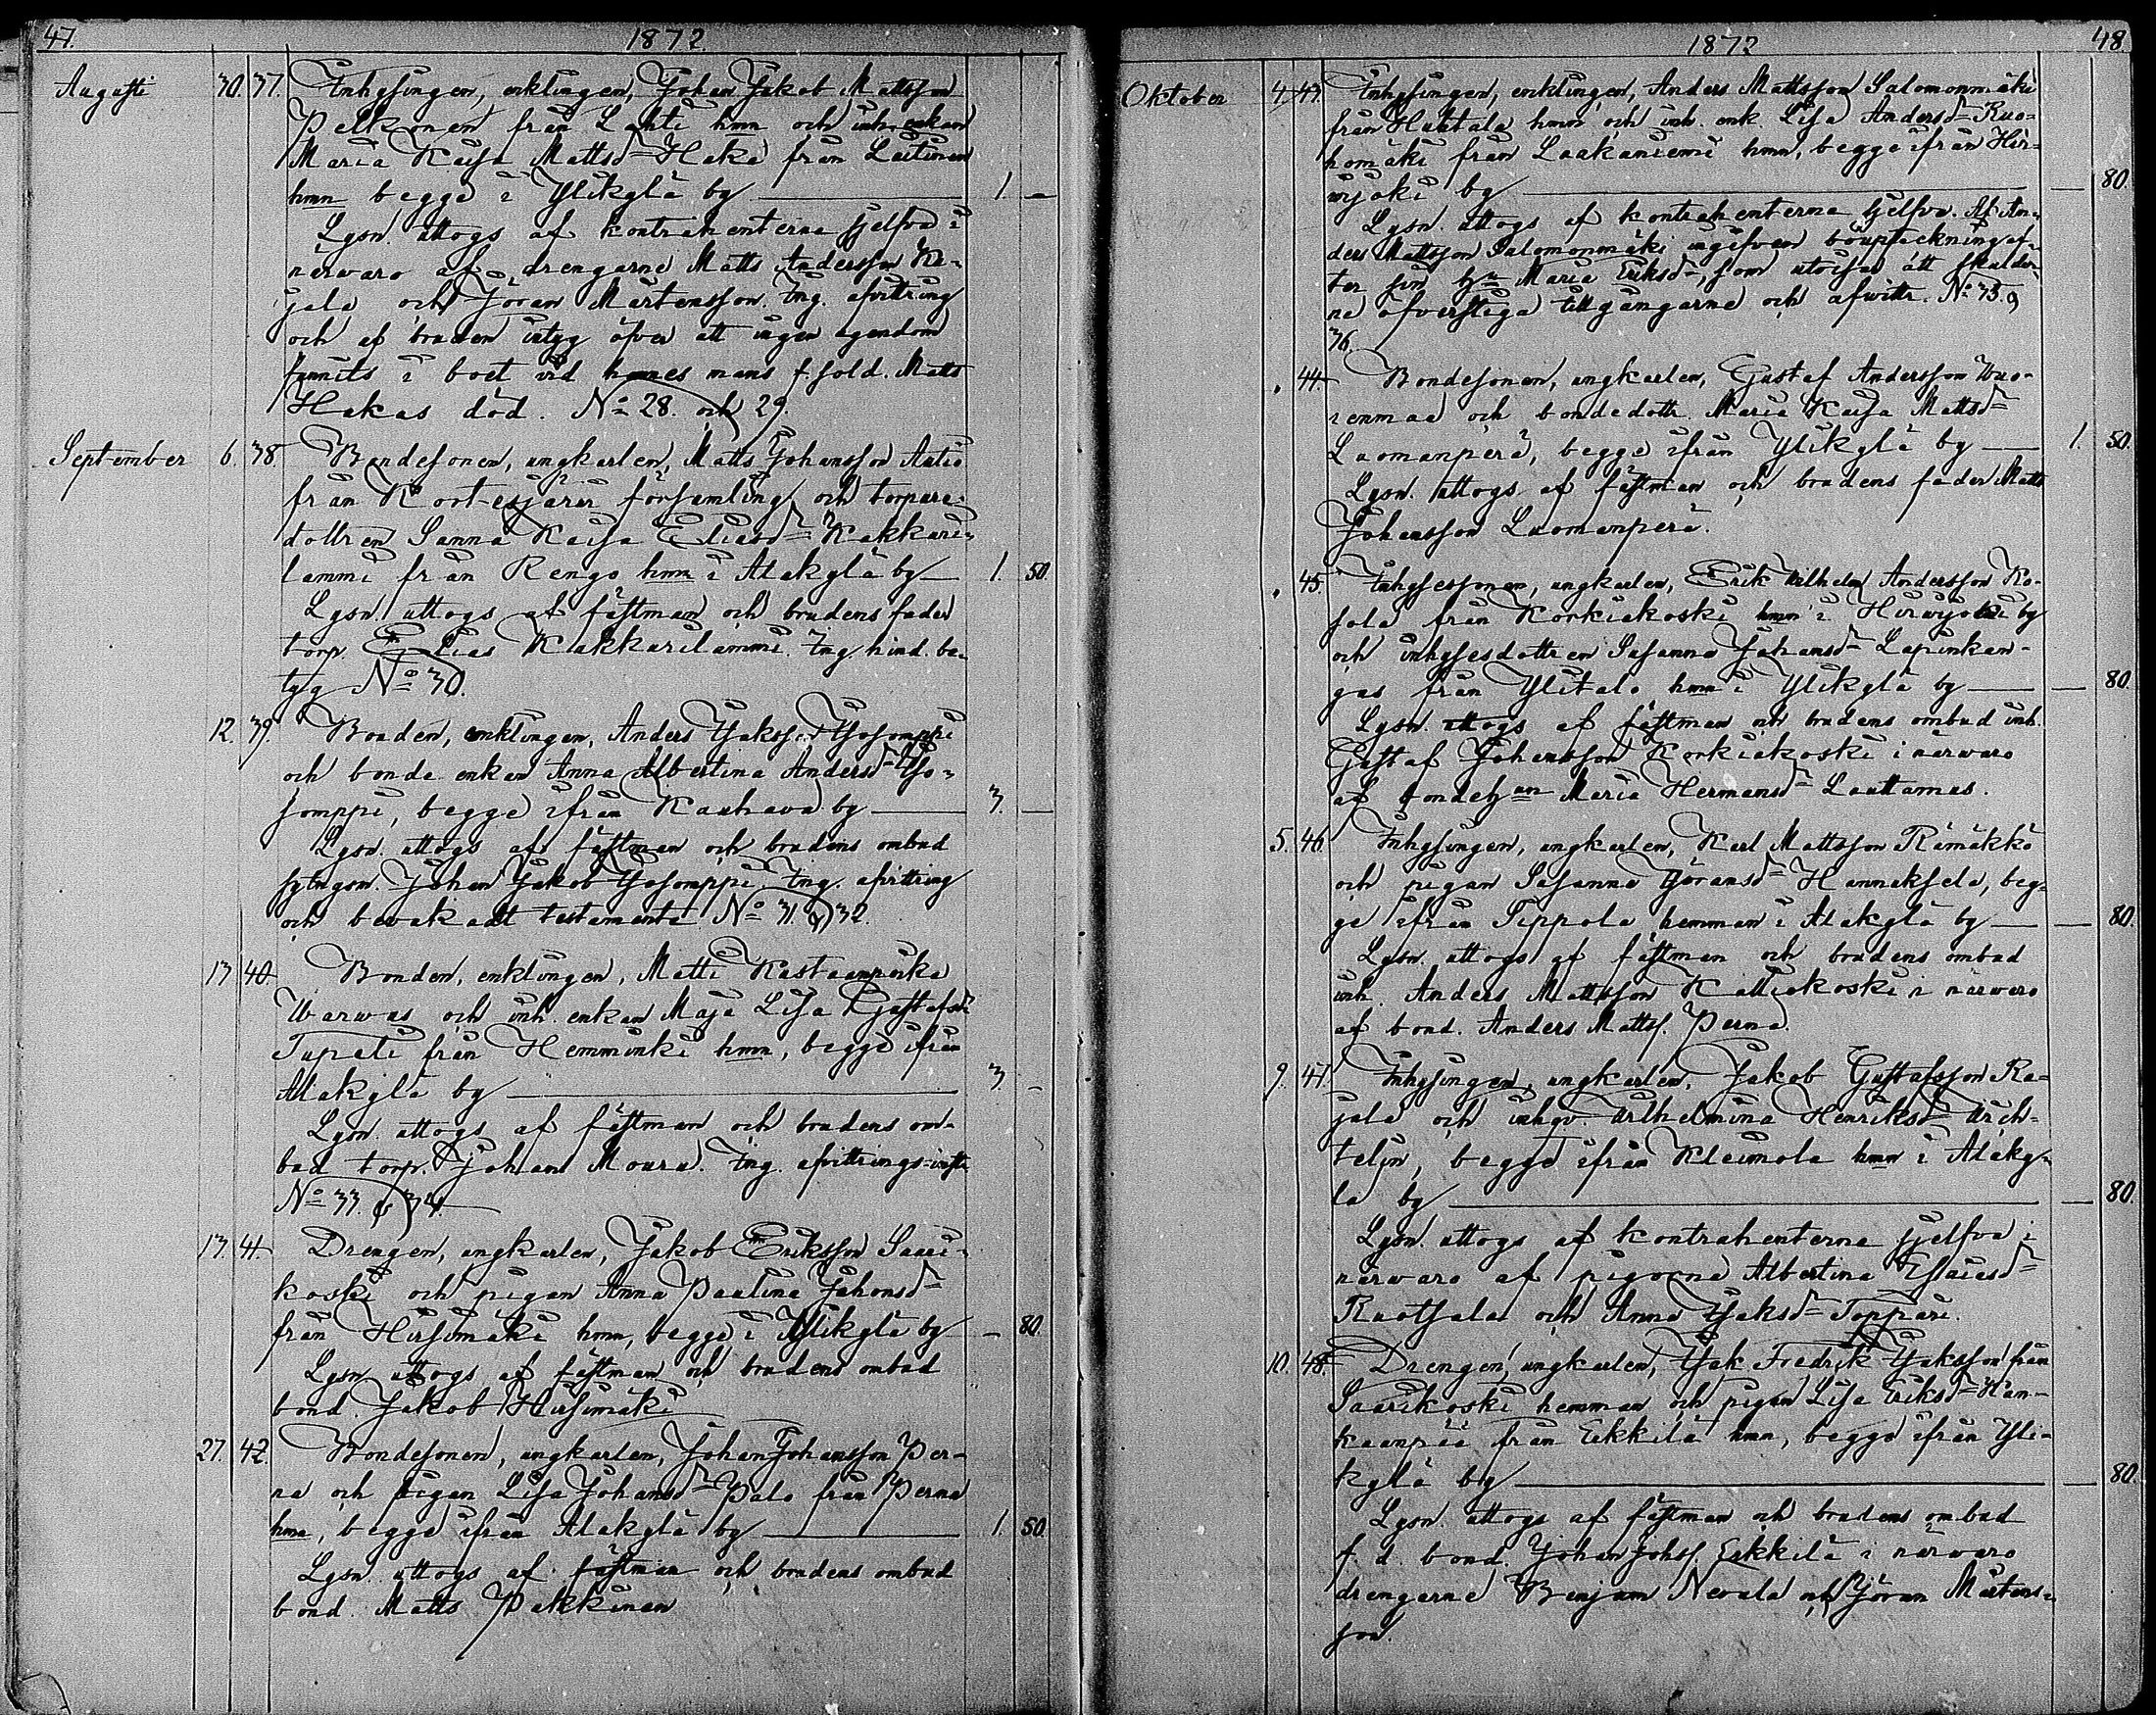 47. 1872.
Augusti 30. 37. Inhysingen, enklingen, Johan Jakob Mattsson
Pelkonen från Lahti hmn och inh. enkan
Maria Kaisa Mattsd. Haka från Laitinen
hmn begge i Ylikylä by 1. –
Lysn. uttogs af kontrahenterna sjelfva i
närwaro af drengarne Matts Andersson
jala och Jöran Mårtensson. Ing. afvittring
och af bruden intyg öfver att ingen egendom
funnits i boet vid hennes mans f. sold. Matts
Hakas död. No 28. och 29.
September 6. 38. Bondesonen, ungkarlen, Matts Johansson Autio
från Kortesjärvi församling och torpare-
dottren Sanna Kaisa Eliasd. Kakkuri-
lammi från Rengo hmn i Alakylä by 1. 50.
Lysn. uttogs af fästman och brudens fader
torp. Elias Kakkurilammi. Ing. hind. be-
tyg No 30.
12. 39. Bonden, enklingen, Anders Jaksson Isosomppi
och bonde enkan Anna Albertina Andersd. Iso-
somppi, begge ifrån Kauhava by 3. –
Lysn. uttogs af fästman och brudens ombud
sytngsm. Johan Jakob Isosomppi. Ing. afvittring
och bevakadt testamente No 31. & 32.
13 40. Bonden, enklingen, Matti
Warwas och inh. enkan Maja Lisa Gustafsd.
Tupeli från Hemminki hmn, begge ifrån
Alakylä by 3 –
Lysn. uttogs af fästman och brudens om-
bud torp. Johan Moura. Ing. afvittrings-instr.
No 33. & 34.
13. 41. Drengen, ungkarlen, Jakob Eriksson Saari-
koski och pigan Anna Paulina Johansd.
från Hirsimäki hmn, begge i Ylikylä by – 80.
Lysn. uttogs af fästman och brudens ombud
bond. Jakob Hirsimäki
27. 42. Bondesonen, ungkarlen, Johan Johansson Per-
na och pigan Lisa Johansd. Palo från Perna
hmn, begge ifrån Alakylä by 1. 50.
Lysn. uttogs af fästman och brudens ombud
bond. Matts Pakkinen
1872 48.
Oktober 4. 43. Inhysingen, enklingen, Anders Mattsson Salomonmäki
från Huhtala hmn och inh. enk. Lisa Andersd. Ruo-
homäki från Laakaniemi hmn, begge ifrån Hir-
wijoki by – 80.
Lysn. uttogs af kontrahenterna sjelfva. Af An-
ders Mattsson Salomonmäki ingifven bouppteckning ef-
ter sin Maria Eriksd., som utvisar att skulder-
na öfverstiga tillgångarne och afwittr. No 35. &
36.
44. Bondesonen, ungkarlen, Gustaf Andersson Wuo-
renmaa och bondedottr. Maria Kaisa Mattsd.
Luomanperä, begge ifrån Ylikylä by 1. 50.
Lysn. uttogs af fästman och brudens fader Matts
Johansson Luomanperä.
45. Inhysessonen, ungkarlen, Erik Wilhelm Andersson Ko-
sola från Korkiakoski hmn i Hirwijoki by
och inhysesdottren Susanna Johansd. Lapinkan-
gas från Ylitalo hmn i Ylikylä by – 80.
Lysn. uttogs af fästman och brudens ombud inh.
Gustaf Johansson Korkiakoski i närwaro
af Maria Hermansd. Lauttamus.
5. 46. Inhysingen, ungkarlen, Karl Mattsson Rämäkkö
och pigan Susanna Göransd. Hannuksela, beg-
ge ifrån Tippola hemman i Alakylä by – 80.
Lysn. uttogs af fästman och brudens ombud
inh. Anders Mattsson Kattiakoski i närwaro
af bond. Anders Matts. Perna.
9. 47. Inhysingen, ungkarlen, Jakob Gustafsson Ra-
jala och Wilhelmina Henriksd. Wich-
teljn, begge ifrån Kleimola hmn i Alaky-
la by – 80.
Lysn. uttogs af kontrahenterna sjelfva i
närwaro af pigorna Albertina Esaiasd.
Ruotsala och Anna Jaksd. Toppari.
10. 48. Drengen, ungkarlen, Jak Fredrik Jaksson från
Saarikoski hemman och pigan Lisa Eriksd. Han-
kaanpää från Erkkilä hmn, begge ifrån Yli-
kylä by – 80.
Lysn. uttogs af fästman och brudens ombud
f. d. bond. Johan Johs. Erkkilä i närwaro
drengarne Benjam Nevala och Jöran Mårtens-
son.